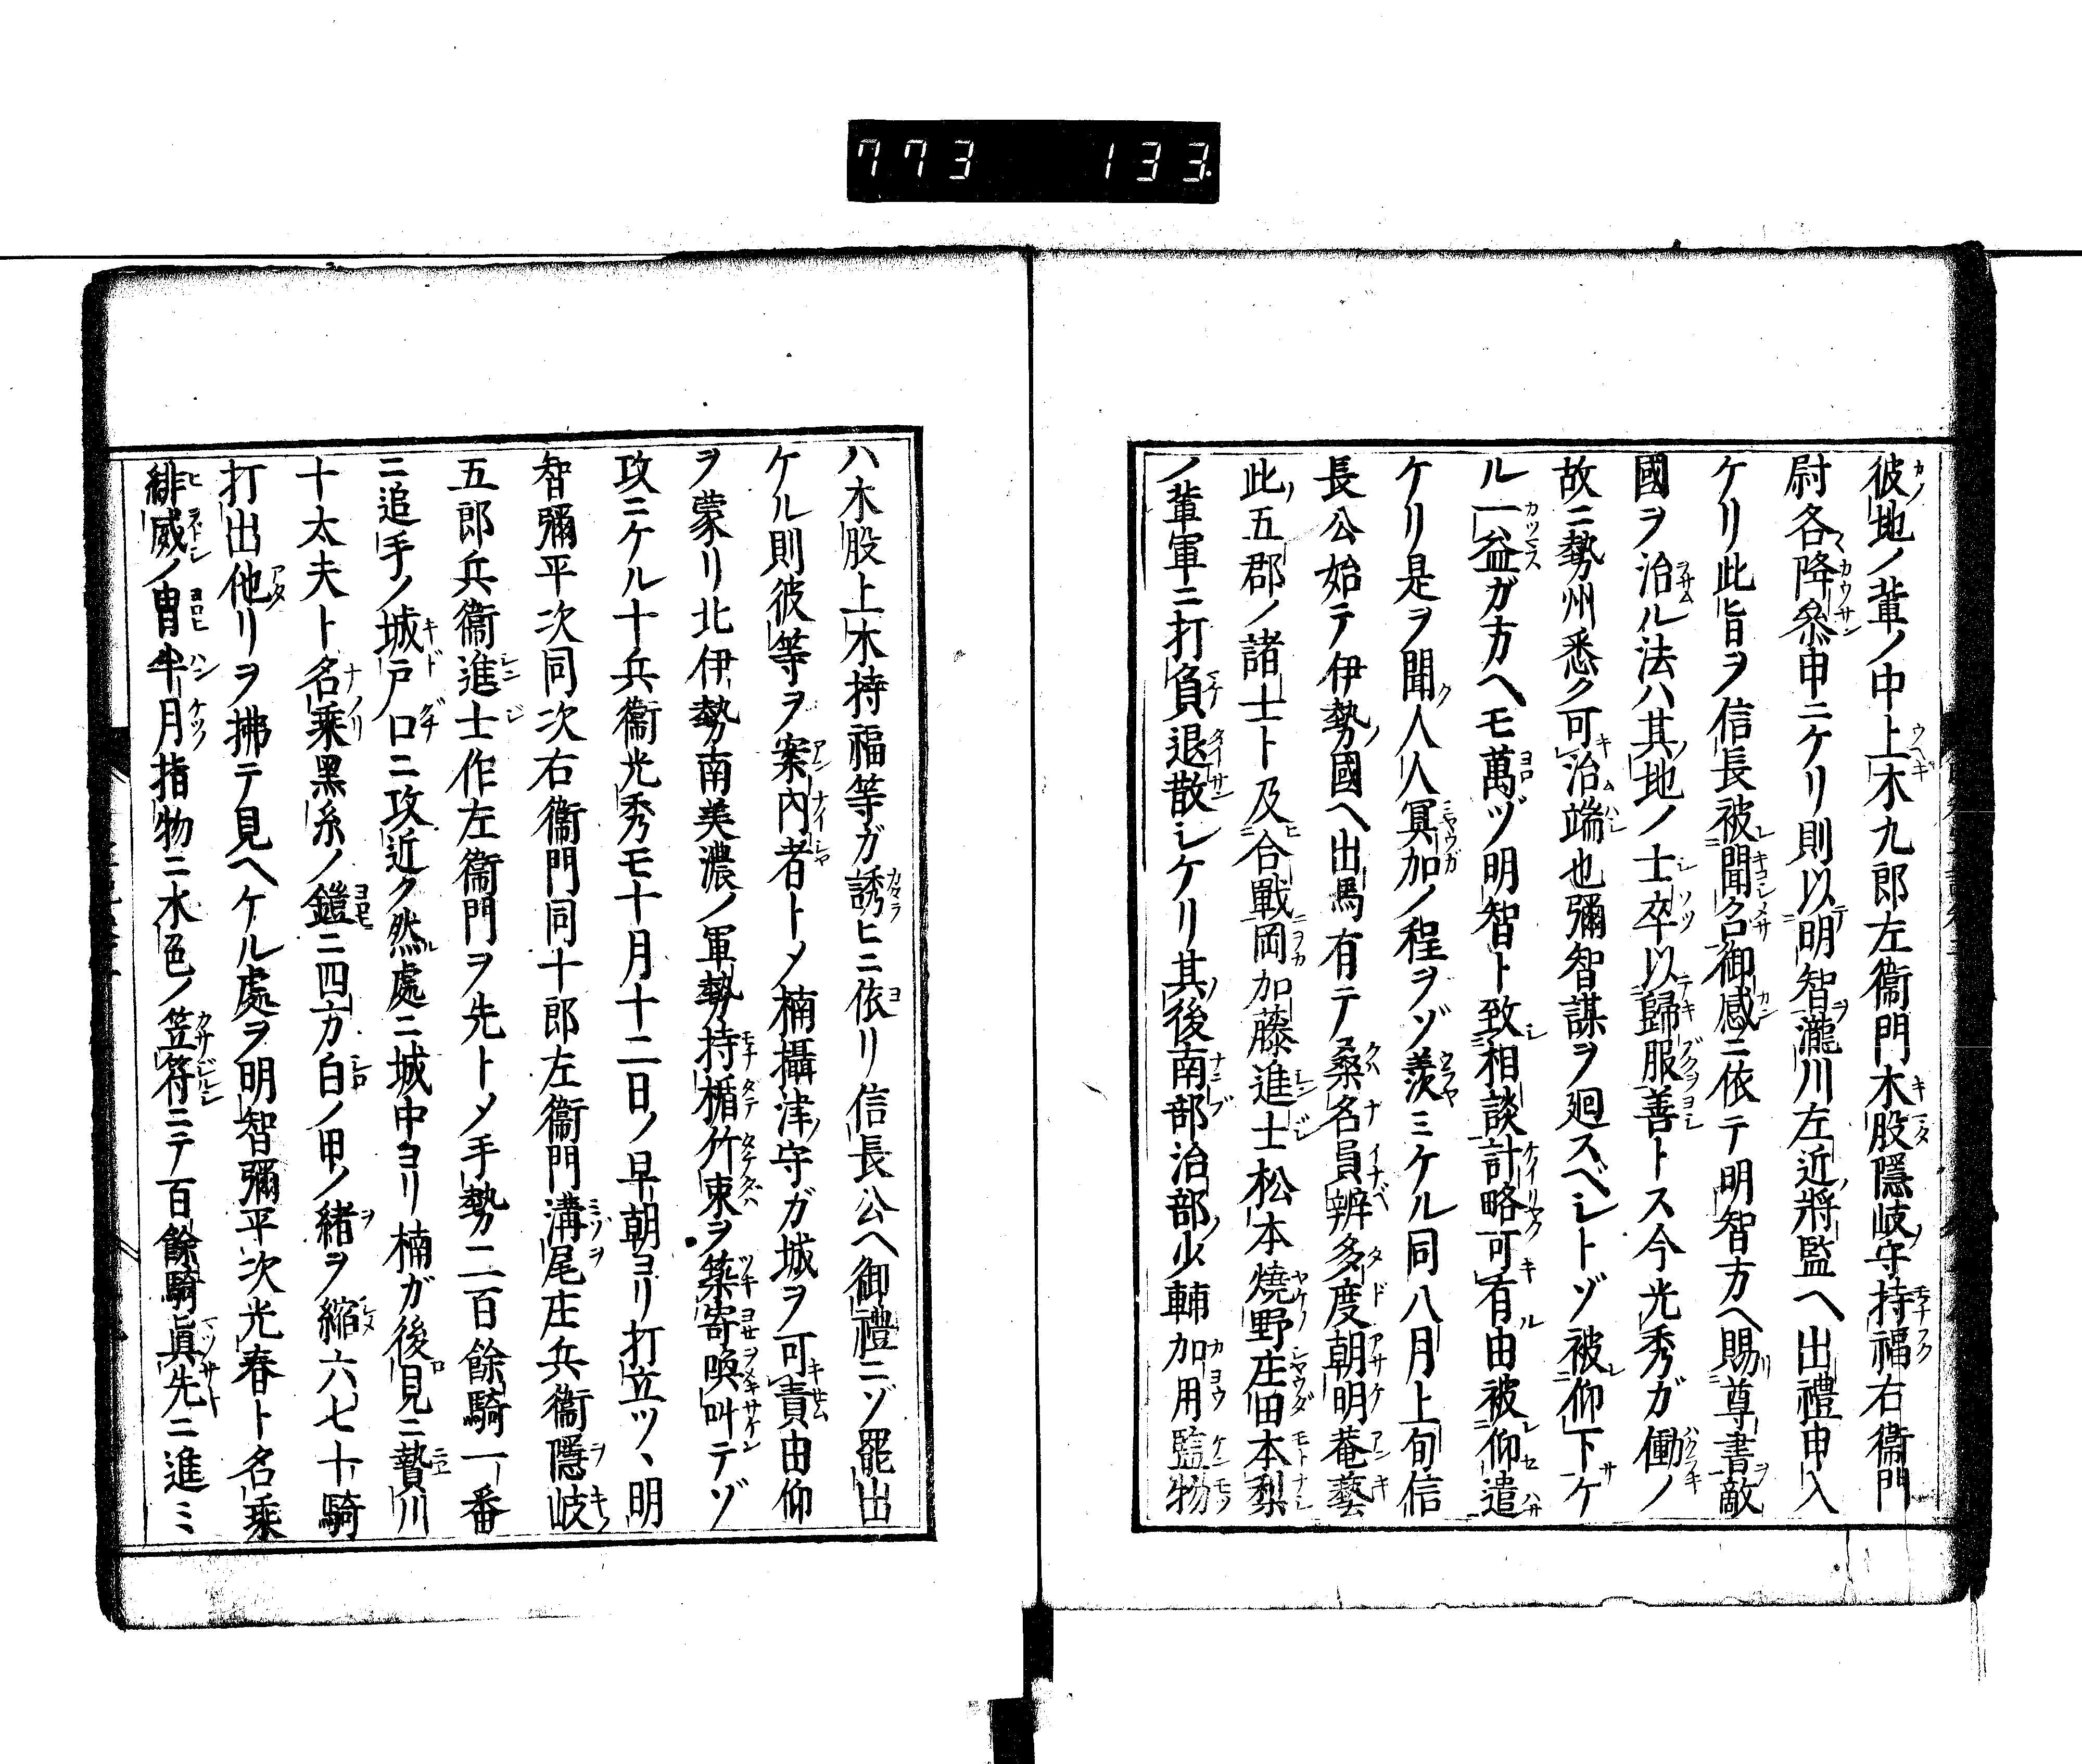 773 133
彼地ノ輩ノ中上木九郎左衞門木股隱岐守持福右衞門
尉各降參申ニケリ則以明智瀧川左近將監ヘ出禮申入
ケリ此旨ヲ信長被聞召御感ニ依テ明智方ヘ賜尊書敵
國ヲ治ル法ハ其地ノ士卒以歸服善トス今光秀ガ働ノ
故ニ勢州悉ク可治端也彌智謀ヲ廻スベシトゾ被仰下ケ
ル一益ガ方ヘモ萬ヅ明智ト致相談計略可有由被仰遣
ケリ是ヲ聞人人冥加ノ程ヲゾ羨ミケル同八月上旬信
長公始テ伊勢國ヘ出馬有テ桑名員辨多度朝明菴藝
此五郡ノ諸士ト及合戰岡加藤進士松本燒野庄田本梨
ノ輩軍ニ打負退散シケリ其後南部治部少輔加用監物
ハ木股上木持福等ガ誘ヒニ依リ信長公ヘ御禮ニゾ罷出
ケル則彼等ヲ案內者トメ楠攝津守ガ城ヲ可責由仰
ヲ蒙リ北伊勢南美濃ノ軍勢持楯竹束ヲ築寄喚叫テゾ
攻ニケル十兵衞光秀モ十月十二日ノ早朝ヨリ打立ツヽ明
智彌平次同次右衞門同十郎左衞門溝尾庄兵衞隱岐
五郎兵衞進士作左衞門ヲ先トメ手勢二百餘騎一番
ニ追手ノ城戸口ニ攻近ク然處ニ城中ヨリ楠ガ後見ニ贄川
十太夫ト名乘黑糸ノ鎧ニ四方白ノ甲ノ緒ヲ縮六七十騎
打出他リヲ拂テ見ヘケル處ヲ明智彌平次光春ト名乘
緋威ノ冑半月指物ニ水色ノ笠符ニテ百餘騎眞先ニ進ミ